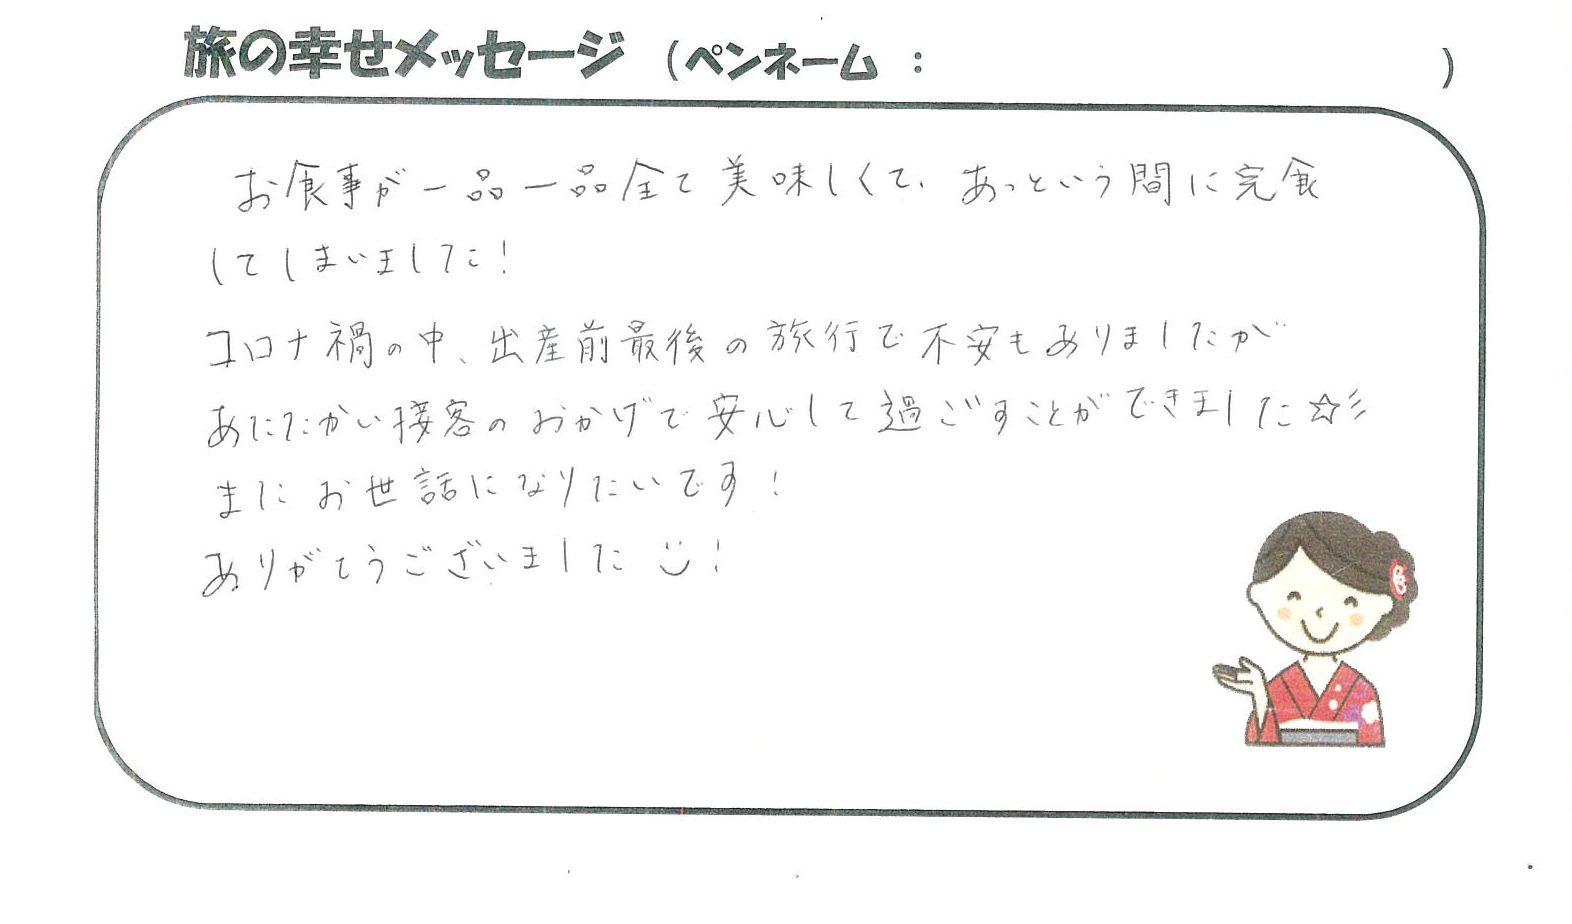 旅の幸せメッセージ (ペンネーム : )
お食事が一品一品全て美味しくて、あっという間に完食
してしまいました!
コロナ禍の中、出産前最後の旅行で不安もありましたが
あたたかい接客のおかげで安心して過ごすことができました☆彡
またお世話になりたいです!
ありがとうございました!